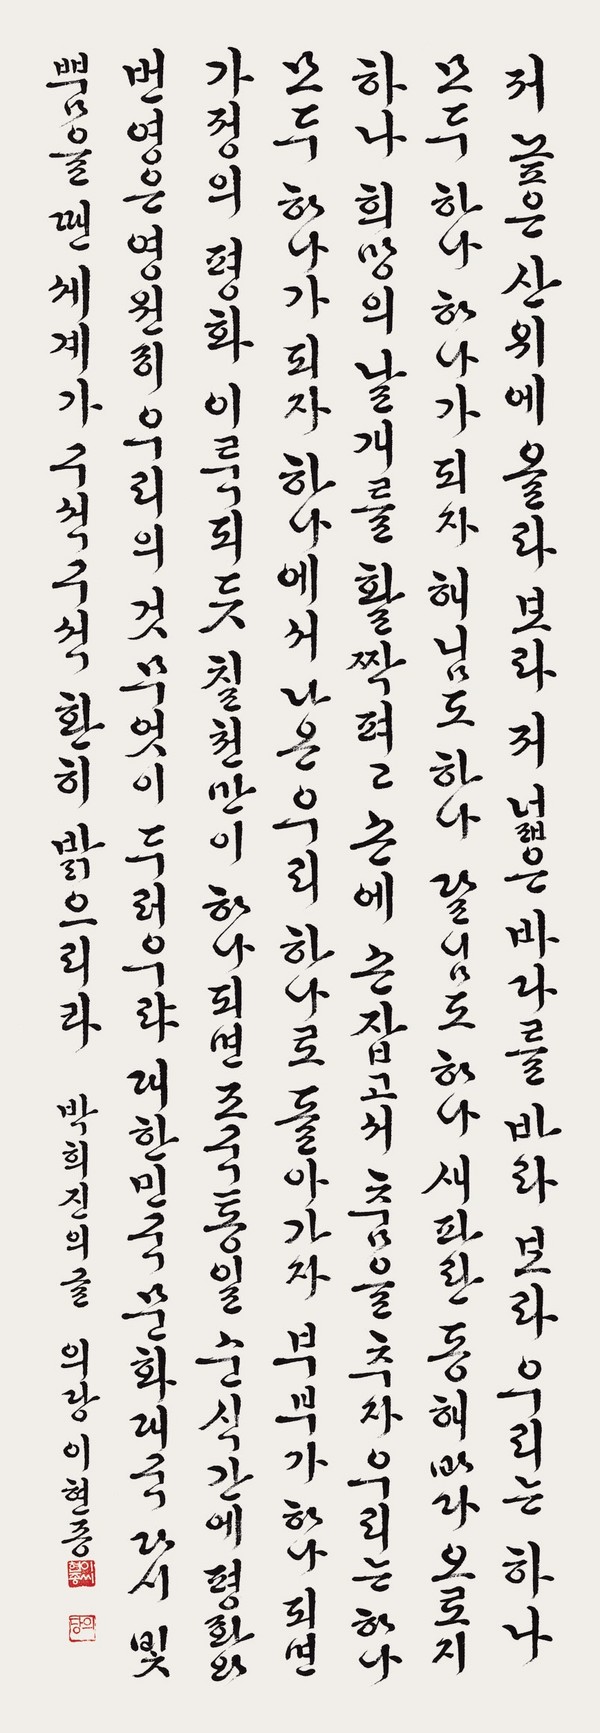 저 높은 산 위에 올라 보라 저 넓은 바다를 바라 보라 우리는 하나
모두 하나 하나가 되자 해님도 하나 달님도 하나 새파란 동해 바다 오로지
하나 희망의 날개를 활짝 펴고 손에 손잡고서 춤을 추자 우리는 하나
모두 하나가 되자 하나에서 나온 우리 하나로 돌아가자 부부가 하나 되면
가정의 평화 이룩되듯 칠천만이 하나되면 조국통일 순식간에 평화와
번영은 영원히 우리의 것 무엇이 두려우랴 대한민국 문화대국 다시 빛
뿜을 땐 세계가 구석구석 환히 밝으리라 박희진의 글 의당 이현종